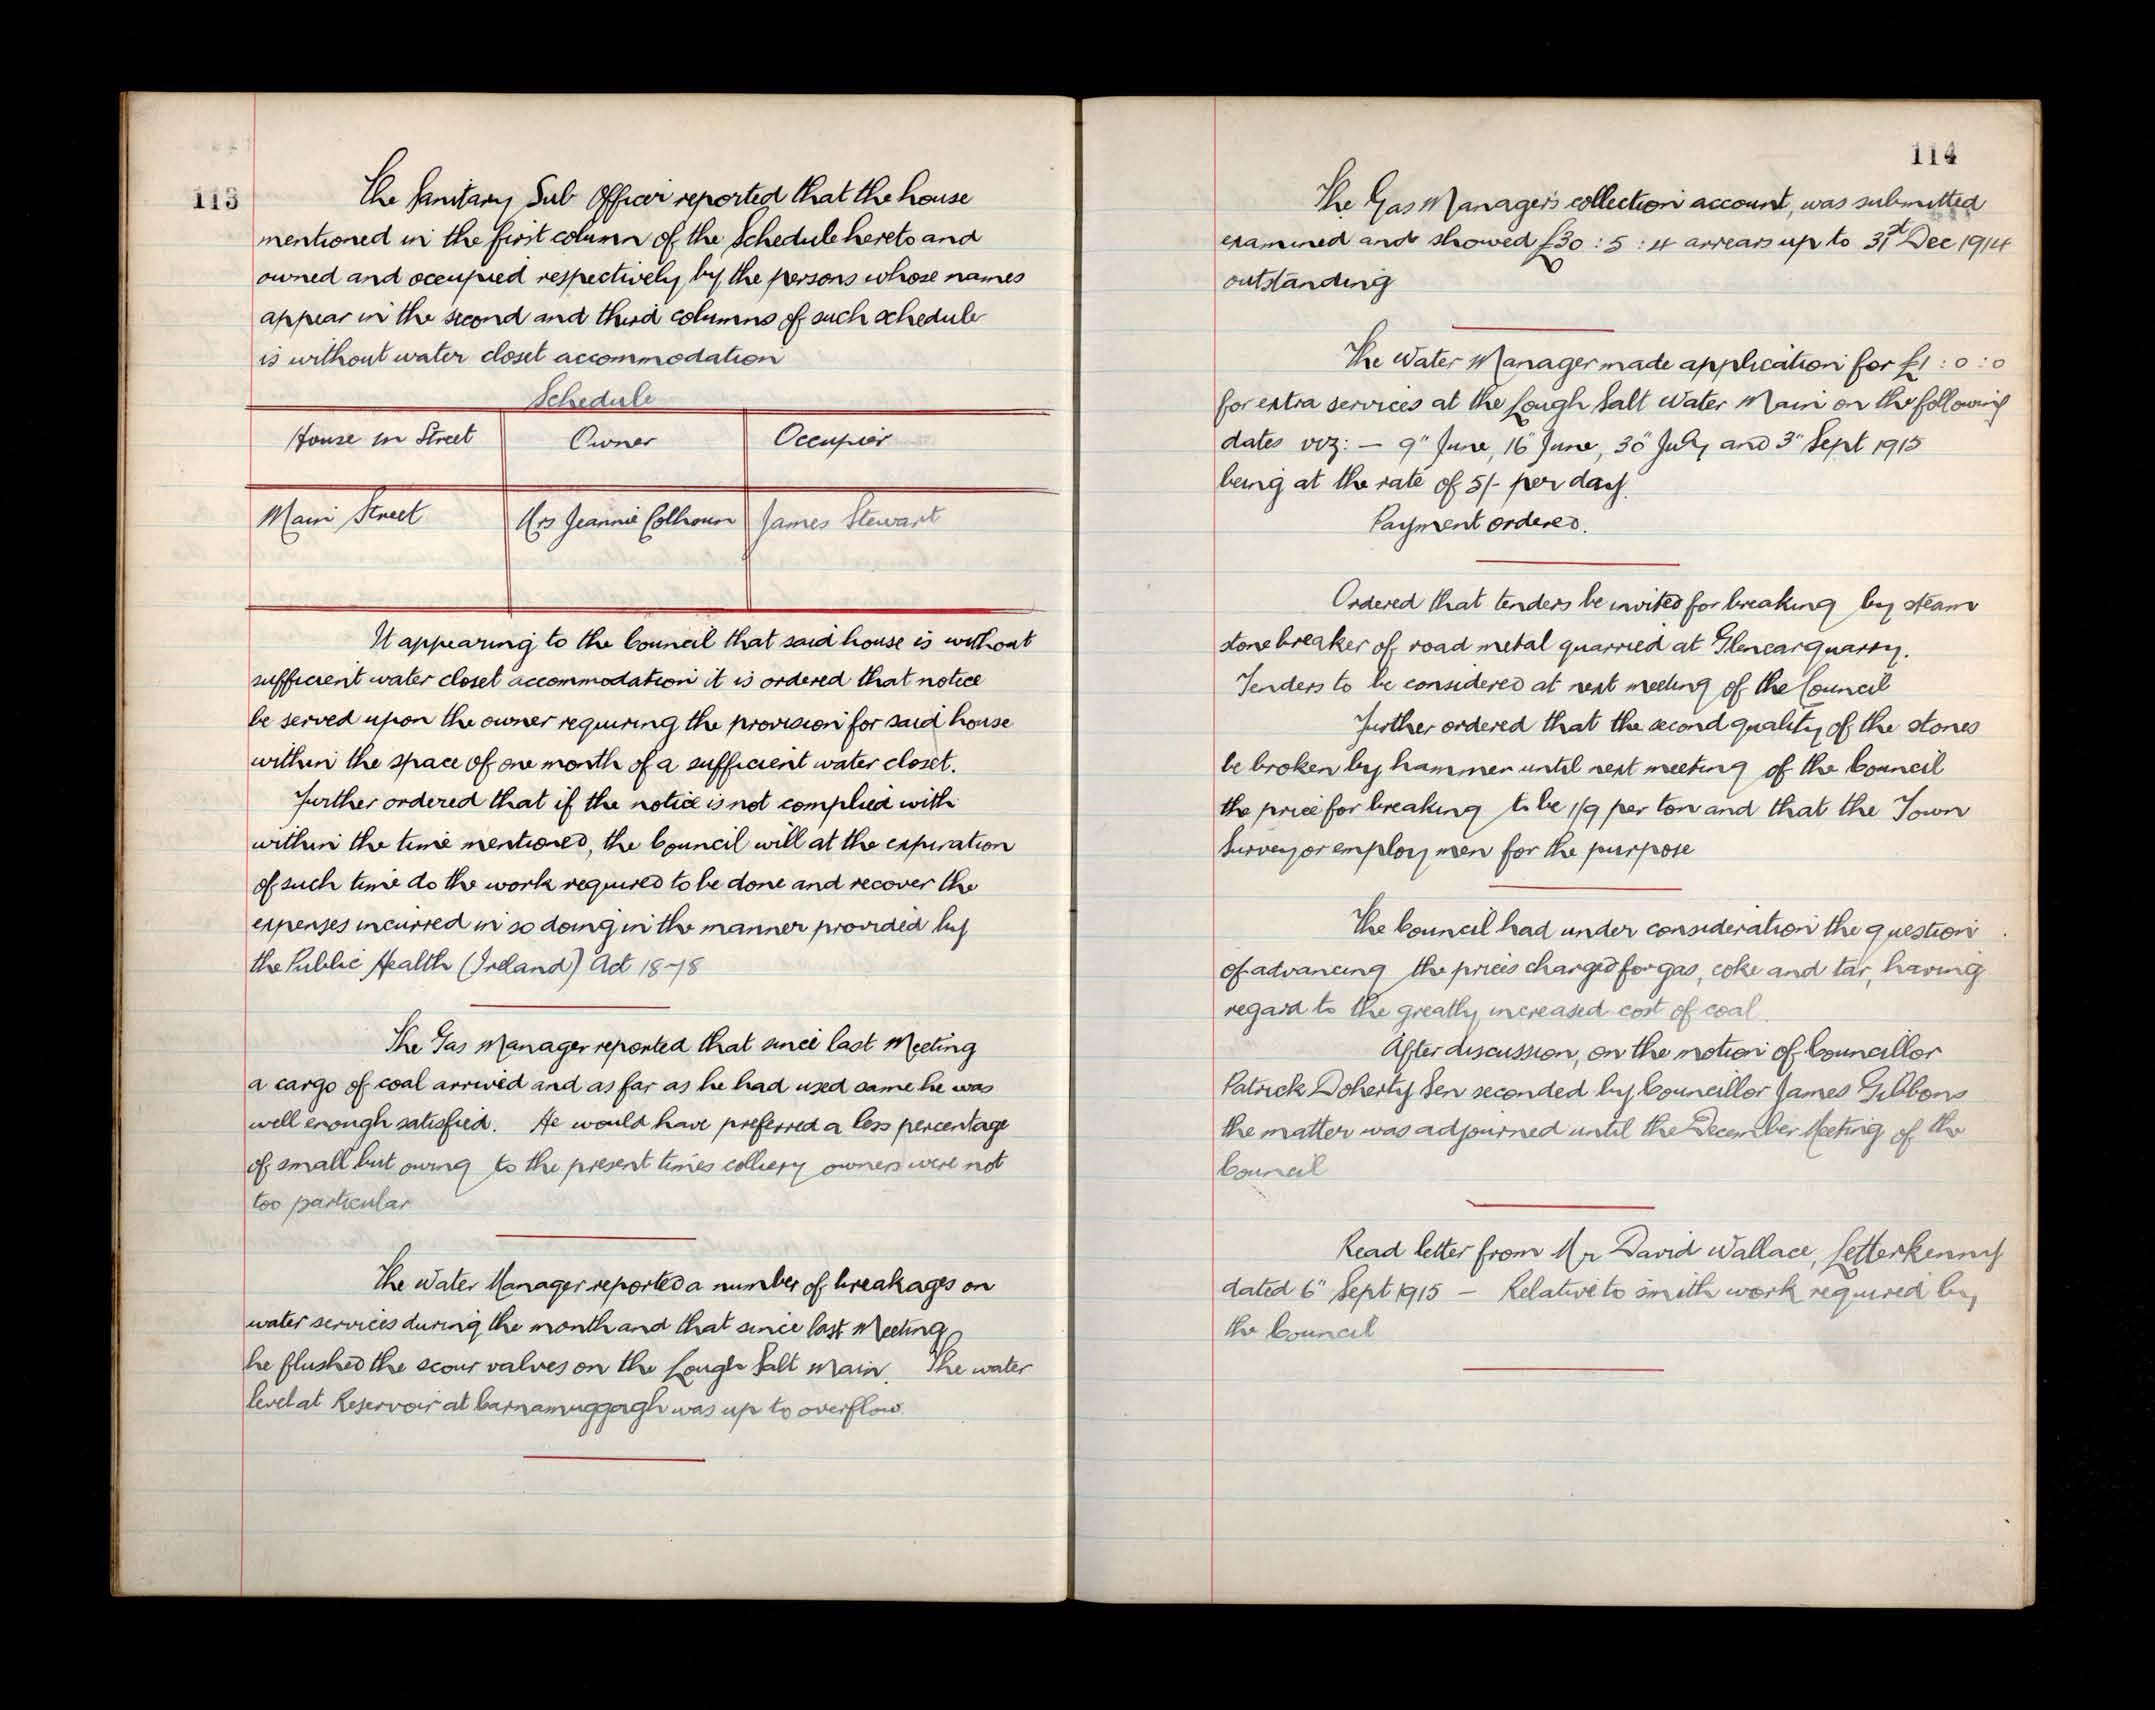 113
The Sanitary Sub Officer reported that the house
mentioned in the first column of the Schedule hereto and
owned and occupied respectively by the persons whose names
appear in the second and third columns of such schedule
is without water closet accommodation
Schedule
House in Street Owner Occupier
Main Street Mrs Jeannie Colhoun James Stewart
It appearing to the Council that said house is without
sufficient water closet accommodation it is ordered that notice
be served upon the owner requiring the provision for said house
within the space of one month of a sufficient water closet.
Further ordered that if the notice is not complied with
within the time mentioned, the Council will at the expiration
of such time do the work required to be done and recover the
expenses incurred in so doing in the manner provided by
the Public Health (Ireland) Act 1878
The Gas Manager reported that since last Meeting
a cargo of coal arrived and as far as he had used same he was
well enough satisfied. He would have preferred a less percentage
of small but owing to the present times colliery owners were not
too particular
The Water Manager reported a number of breakages on
water services during the month and that since last Meeting
he flushed the scour valves on the Lough Salt Main. The water
level at Reservoir at Carnamuggagh was up to overflow.
114
The Gas Manager's collection account, was submitted
examined and showed £30 : 5 : 4 arrears up to 31st Dec 1914
outstanding
The Water Manager made application for £1 : 0 : 0
for extra services at the Lough Salt Water Main on the following
dates viz: — 9" June, 16" June, 30" July and 3" Sept 1915
being at the rate of 5/- per day.
Payment ordered.
Ordered that tenders be invited for breaking by steam
stonebreaker of road metal quarried at Glencar quarry.
Tenders to be considered at next meeting of the Council
Further ordered that the second quality of the stones
be broken by hammer until next meeting of the Council
the price for breaking to be 1/9 per ton and that the Town
Surveyor employ men for the purpose
The Council had under consideration the question
of advancing the prices charged for gas, coke and tar, having
regard to the greatly increased cost of coal.
After discussion, on the motion of Councillor
Patrick Doherty Sen seconded by Councillor James Gibbons
the matter was adjourned until the December Meeting of the
Council
Read letter from Mr David Wallace, Letterkenny
dated 6" Sept 1915 — Relative to smith work required by
the Council